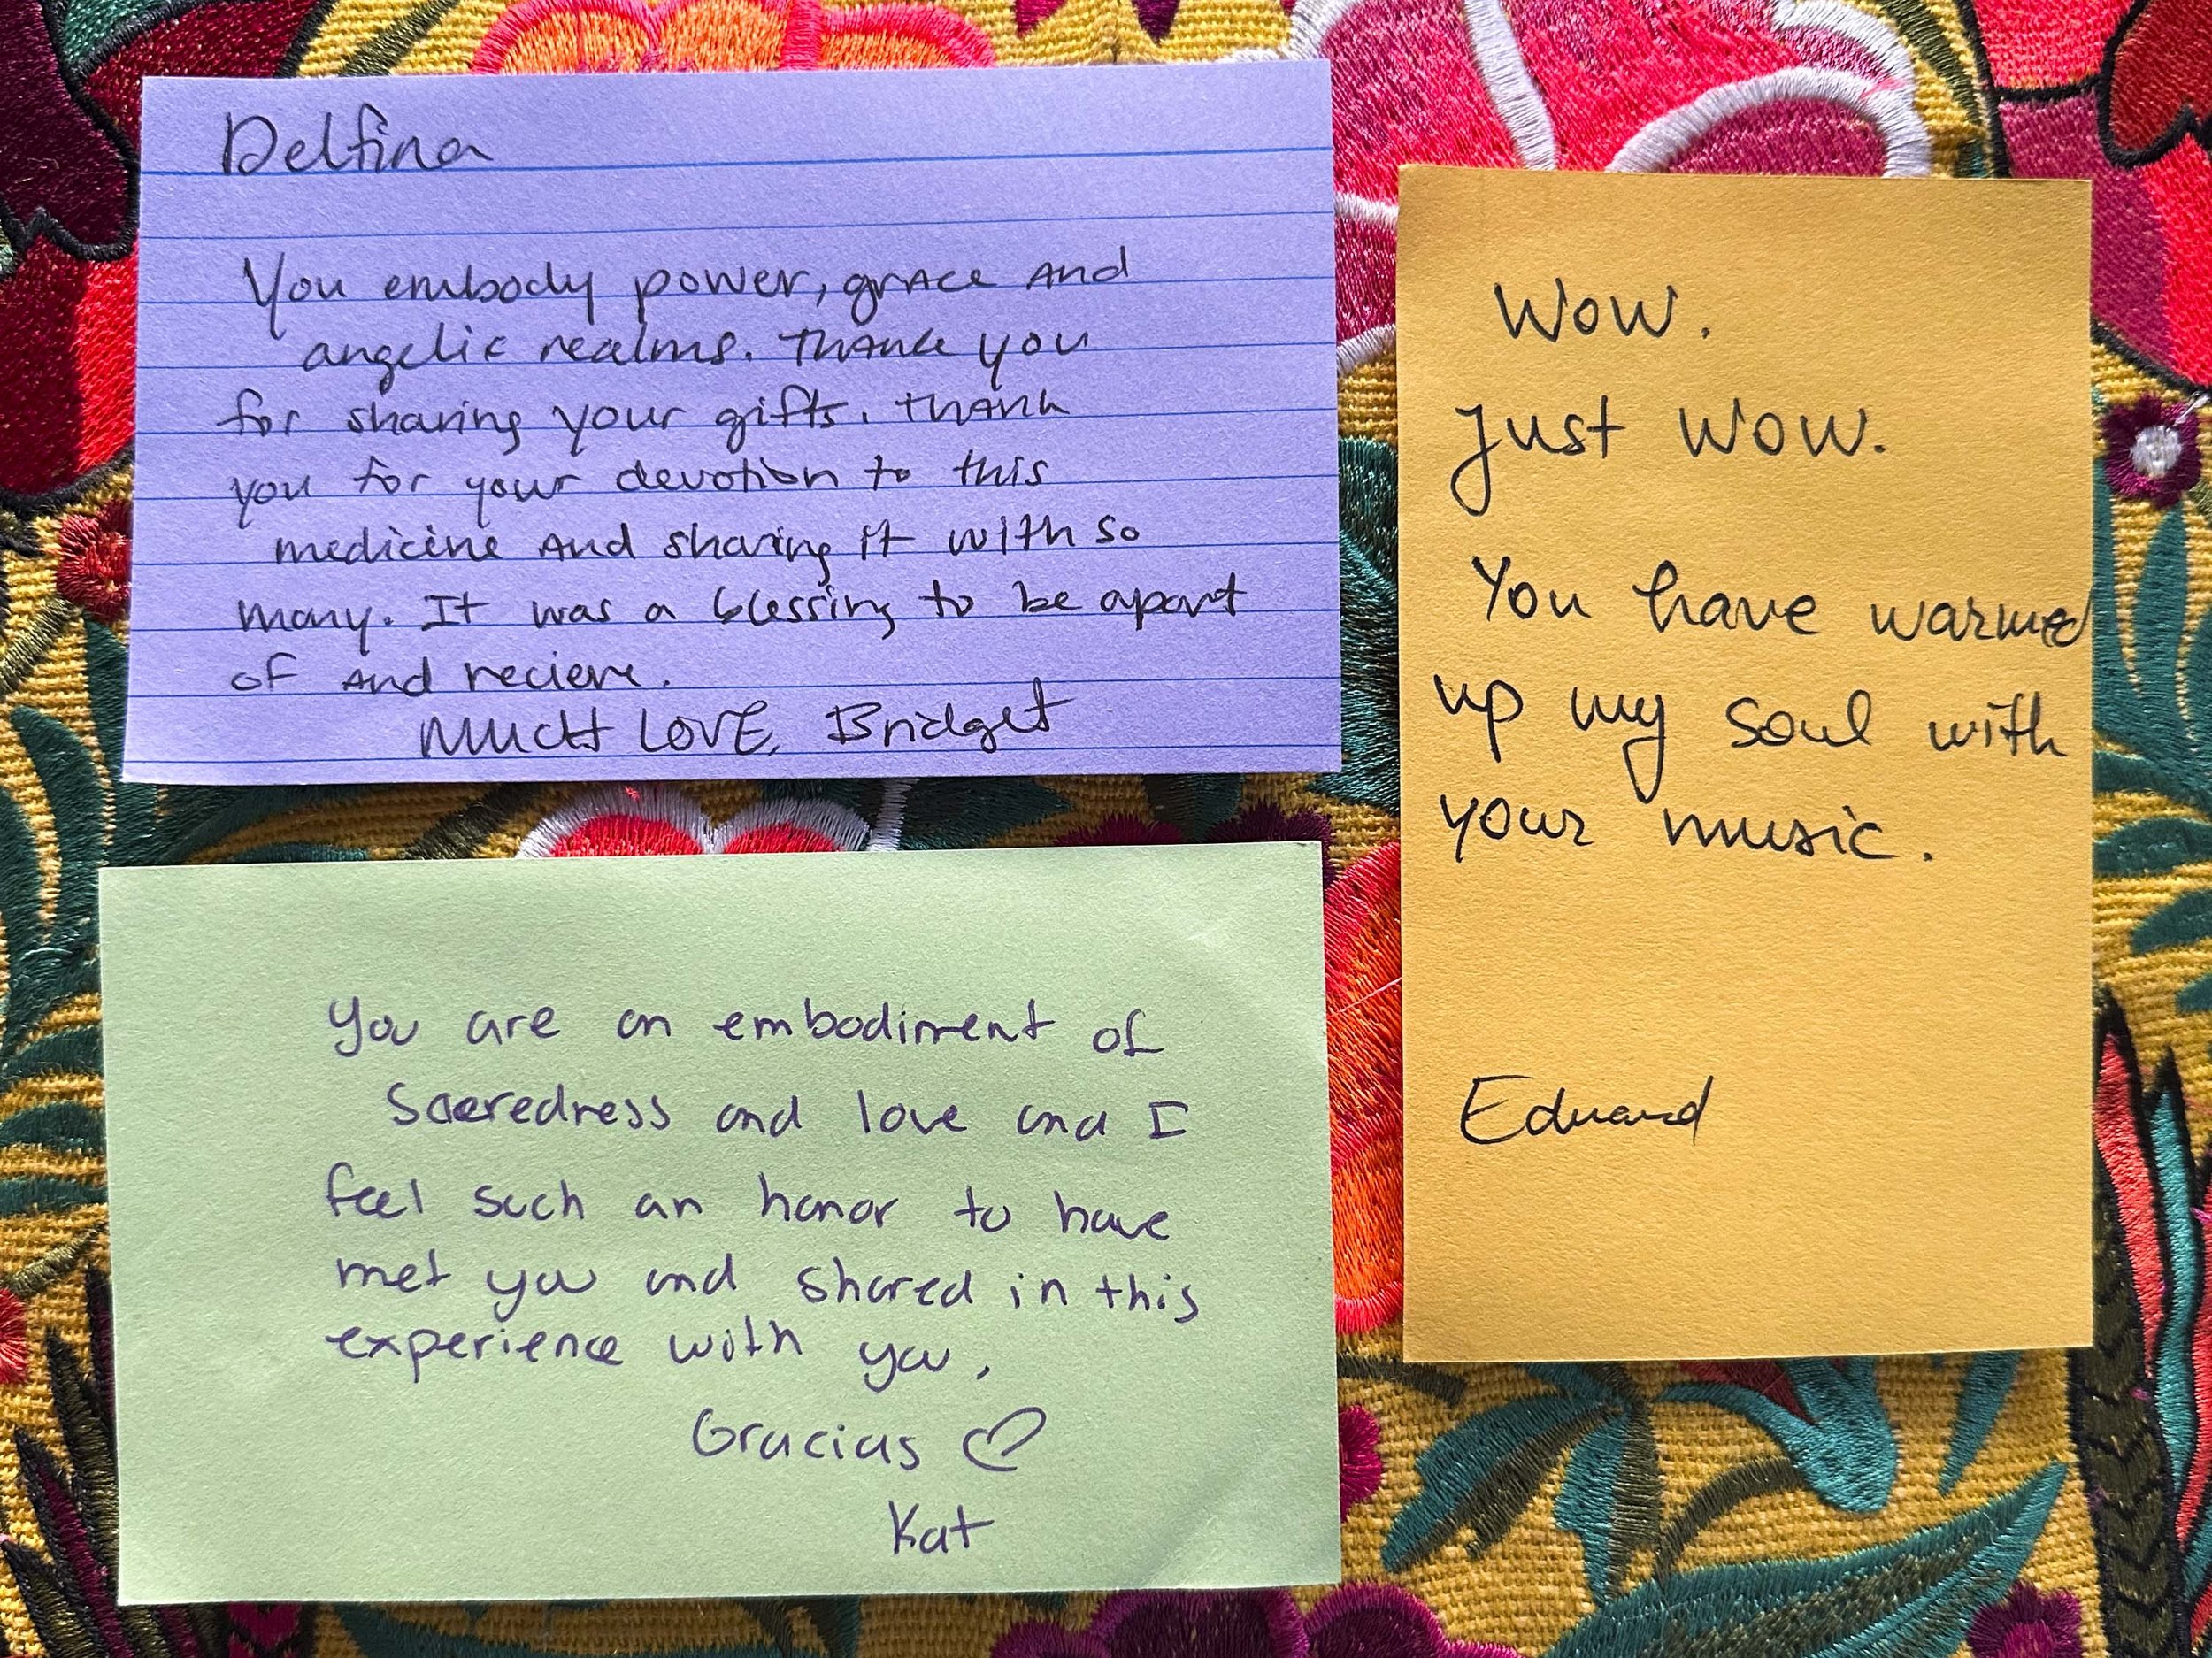 Delfina
You embody power, grace and
angelic realms. Thank you
for sharing your gifts. Thank
you for your devotion to this
medicine and sharing it with so
many. It was a blessing to be apart
of and recieve.
MUCH LOVE, Bridget
You are an embodiment of
Sacredness and love and I
feel such an honor to have
met you and shared in this
experience with you.
Gracias ♡
Kat
Wow.
Just wow.
You have warmed
up my soul with
your music.
Eduard